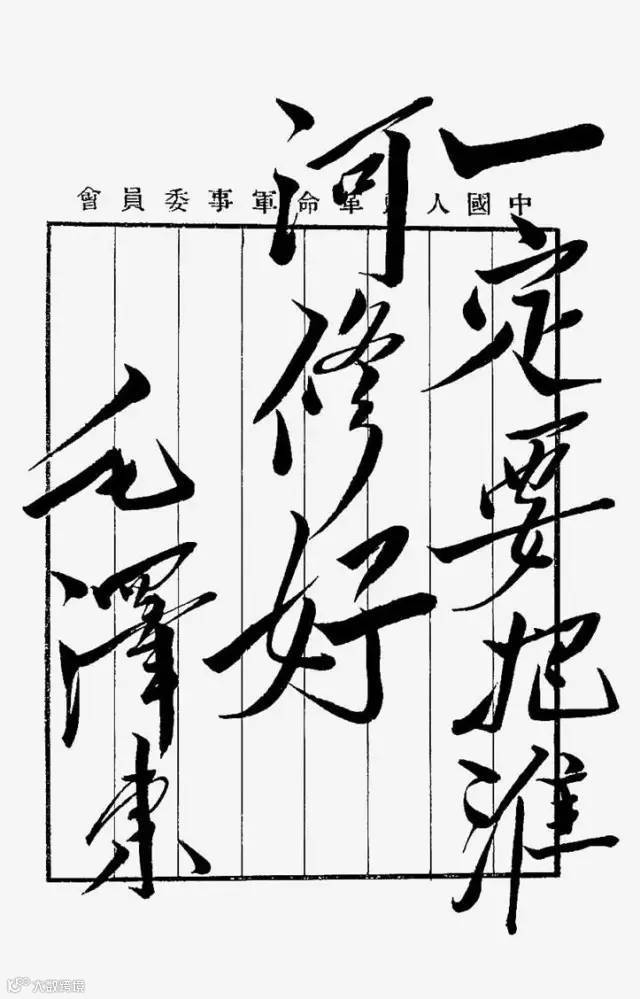 中國人民革命軍事委員會
一定要把淮
河修好
毛澤東
大数跨境